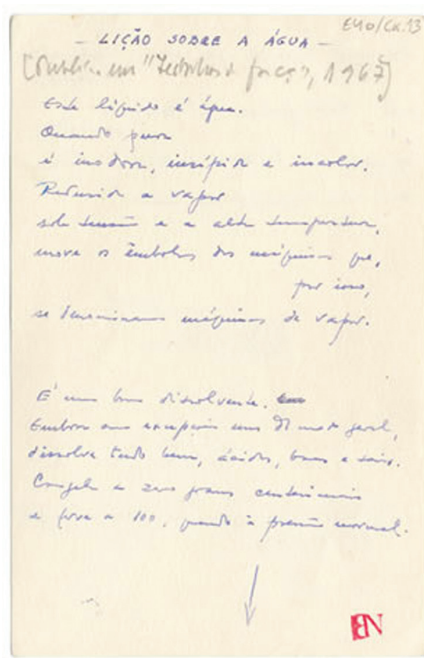 E40/Cx.13
– LIÇÃO SOBRE A ÁGUA –
em "Linhas de força", 1967)
Este líquido é água.
Quando pura
é inodora, insípida e incolor.
Reduzida a vapor
sob tensão e a alta temperatura,
move os êmbolos das máquinas que,
por isso,
se denominam máquinas de vapor.
É um bom dissolvente.
Embora com excepções mas de modo geral,
dissolve tudo bem, ácidos, bases e sais.
Congela a zero graus centesimais
e ferve a 100, quando à pressão normal.
BN